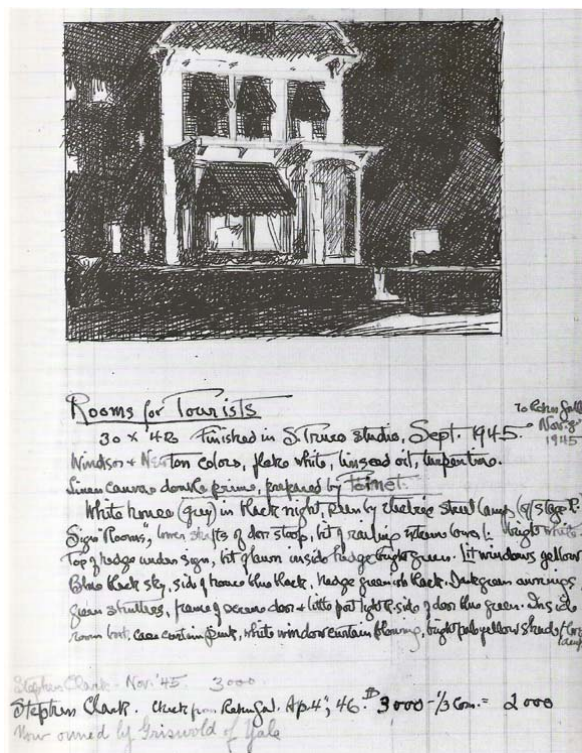 Rooms for Tourists
30 x 42 Finished in S. Truro studio, Sept. 1945.
To Rehn Gall
Nov. 8
1945
Windsor & Newton colors, flake white, linseed oil, turpentine.
Linen canvas double prime, prepared by
White house (grey) in black night, seen by electric street lamp off stage R.
Sign "Rooms", lower of door stoop, bit of railing bright white.
Top of hedge under sign, bit of lawn inside hedge bright green. Lit windows yellow
Blue black sky, side of house blue black, hedge green black. Dark green awnings
green shutters, frame of screen door & little post light R. side of door blue green. Inside
room curtain pink, white window curtain bright pale yellow shade of
lamp
Stephen Clark - Nov. '45. 3000
Stephen Clark. Check from Rehn Gal. Ap. 4", 46. 3000 - 1/3 Com. = 2000
Now owned by Griswold of Yale